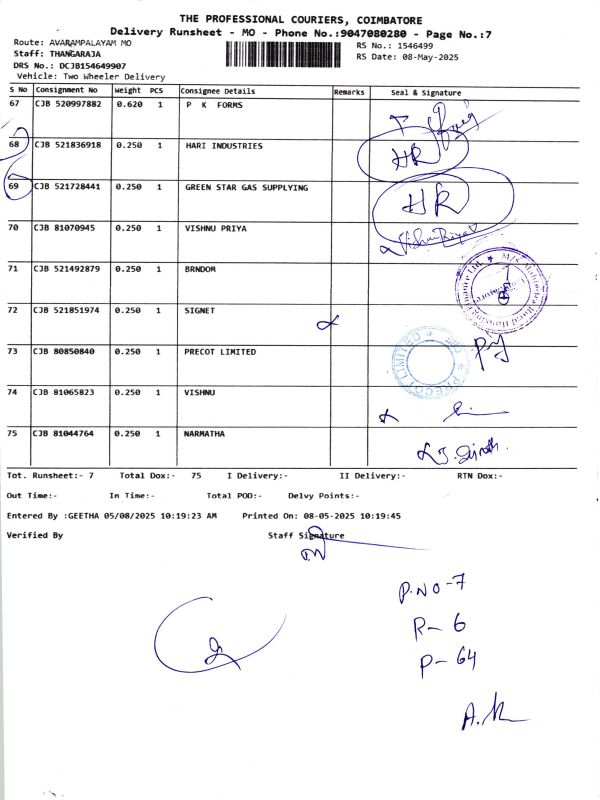 THE PROFESSIONAL COURIERS, COIMBATORE
Delivery Runsheet - MO - Phone No.:9047080280 - Page No.:7
Route: AVARAMPALAYAM MO
RS No.: 1546499
Staff: THANGARAJA
RS Date: 08-May-2025
DRS No.: DCJB154649907
Vehicle: Two Wheeler Delivery
S No Consignment No Weight PCS Consignee Details Remarks Seal & Signature
67 CJB 520997882 0.620 1 P K FORMS
68 CJB 521836918 0.250 1 HARI INDUSTRIES HR
69 CJB 521728441 0.250 1 GREEN STAR GAS SUPPLYING HR
70 CJB 81070945 0.250 1 VISHNU PRIYA VishnuPriya
71 CJB 521492879 0.250 1 BRNDOM
72 CJB 521851974 0.250 1 SIGNET
73 CJB 80850840 0.250 1 PRECOT LIMITED PRECOT LIMITED
74 CJB 81065823 0.250 1 VISHNU
75 CJB 81044764 0.250 1 NARMATHA
Tot. Runsheet:- 7 Total Dox:- 75 I Delivery:- II Delivery:- RTN Dox:-
Out Time:- In Time:- Total POD:- Delvy Points:-
Entered By :GEETHA 05/08/2025 10:19:23 AM Printed On: 08-05-2025 10:19:45
Verified By Staff Signature
P.NO-7
R-6
P-64